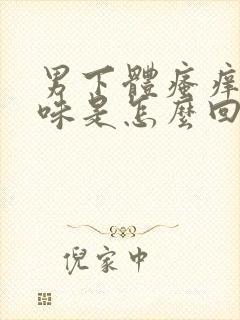 男下體瘙癢
味是怎麼回
倪家中